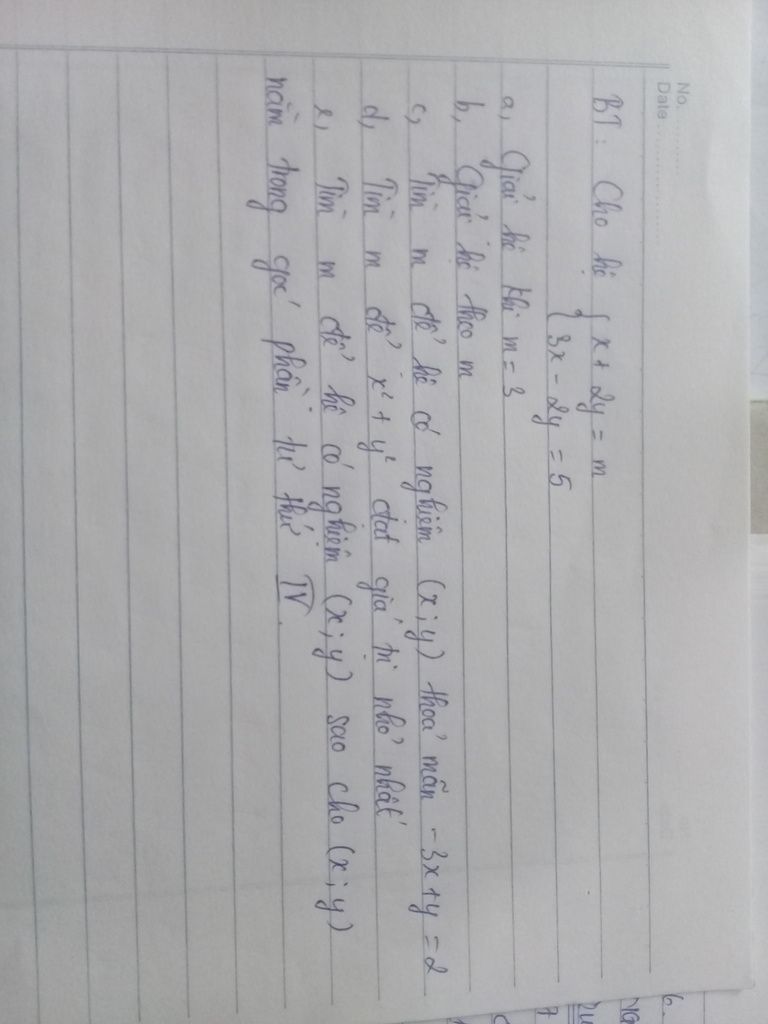 No.
Date
BT: Cho hệ { x + 2y = m
{ 3x - 2y = 5
a, Giải hệ khi m = 3
b, Giải hệ theo m
c, Tìm m để hệ có nghiệm (x; y) thoả mãn -3x + y = 2
d, Tìm m để x² + y² đạt giá trị nhỏ nhất
e, Tìm m để hệ có nghiệm (x; y) sao cho (x; y)
nằm trong góc phần tư thứ IV.